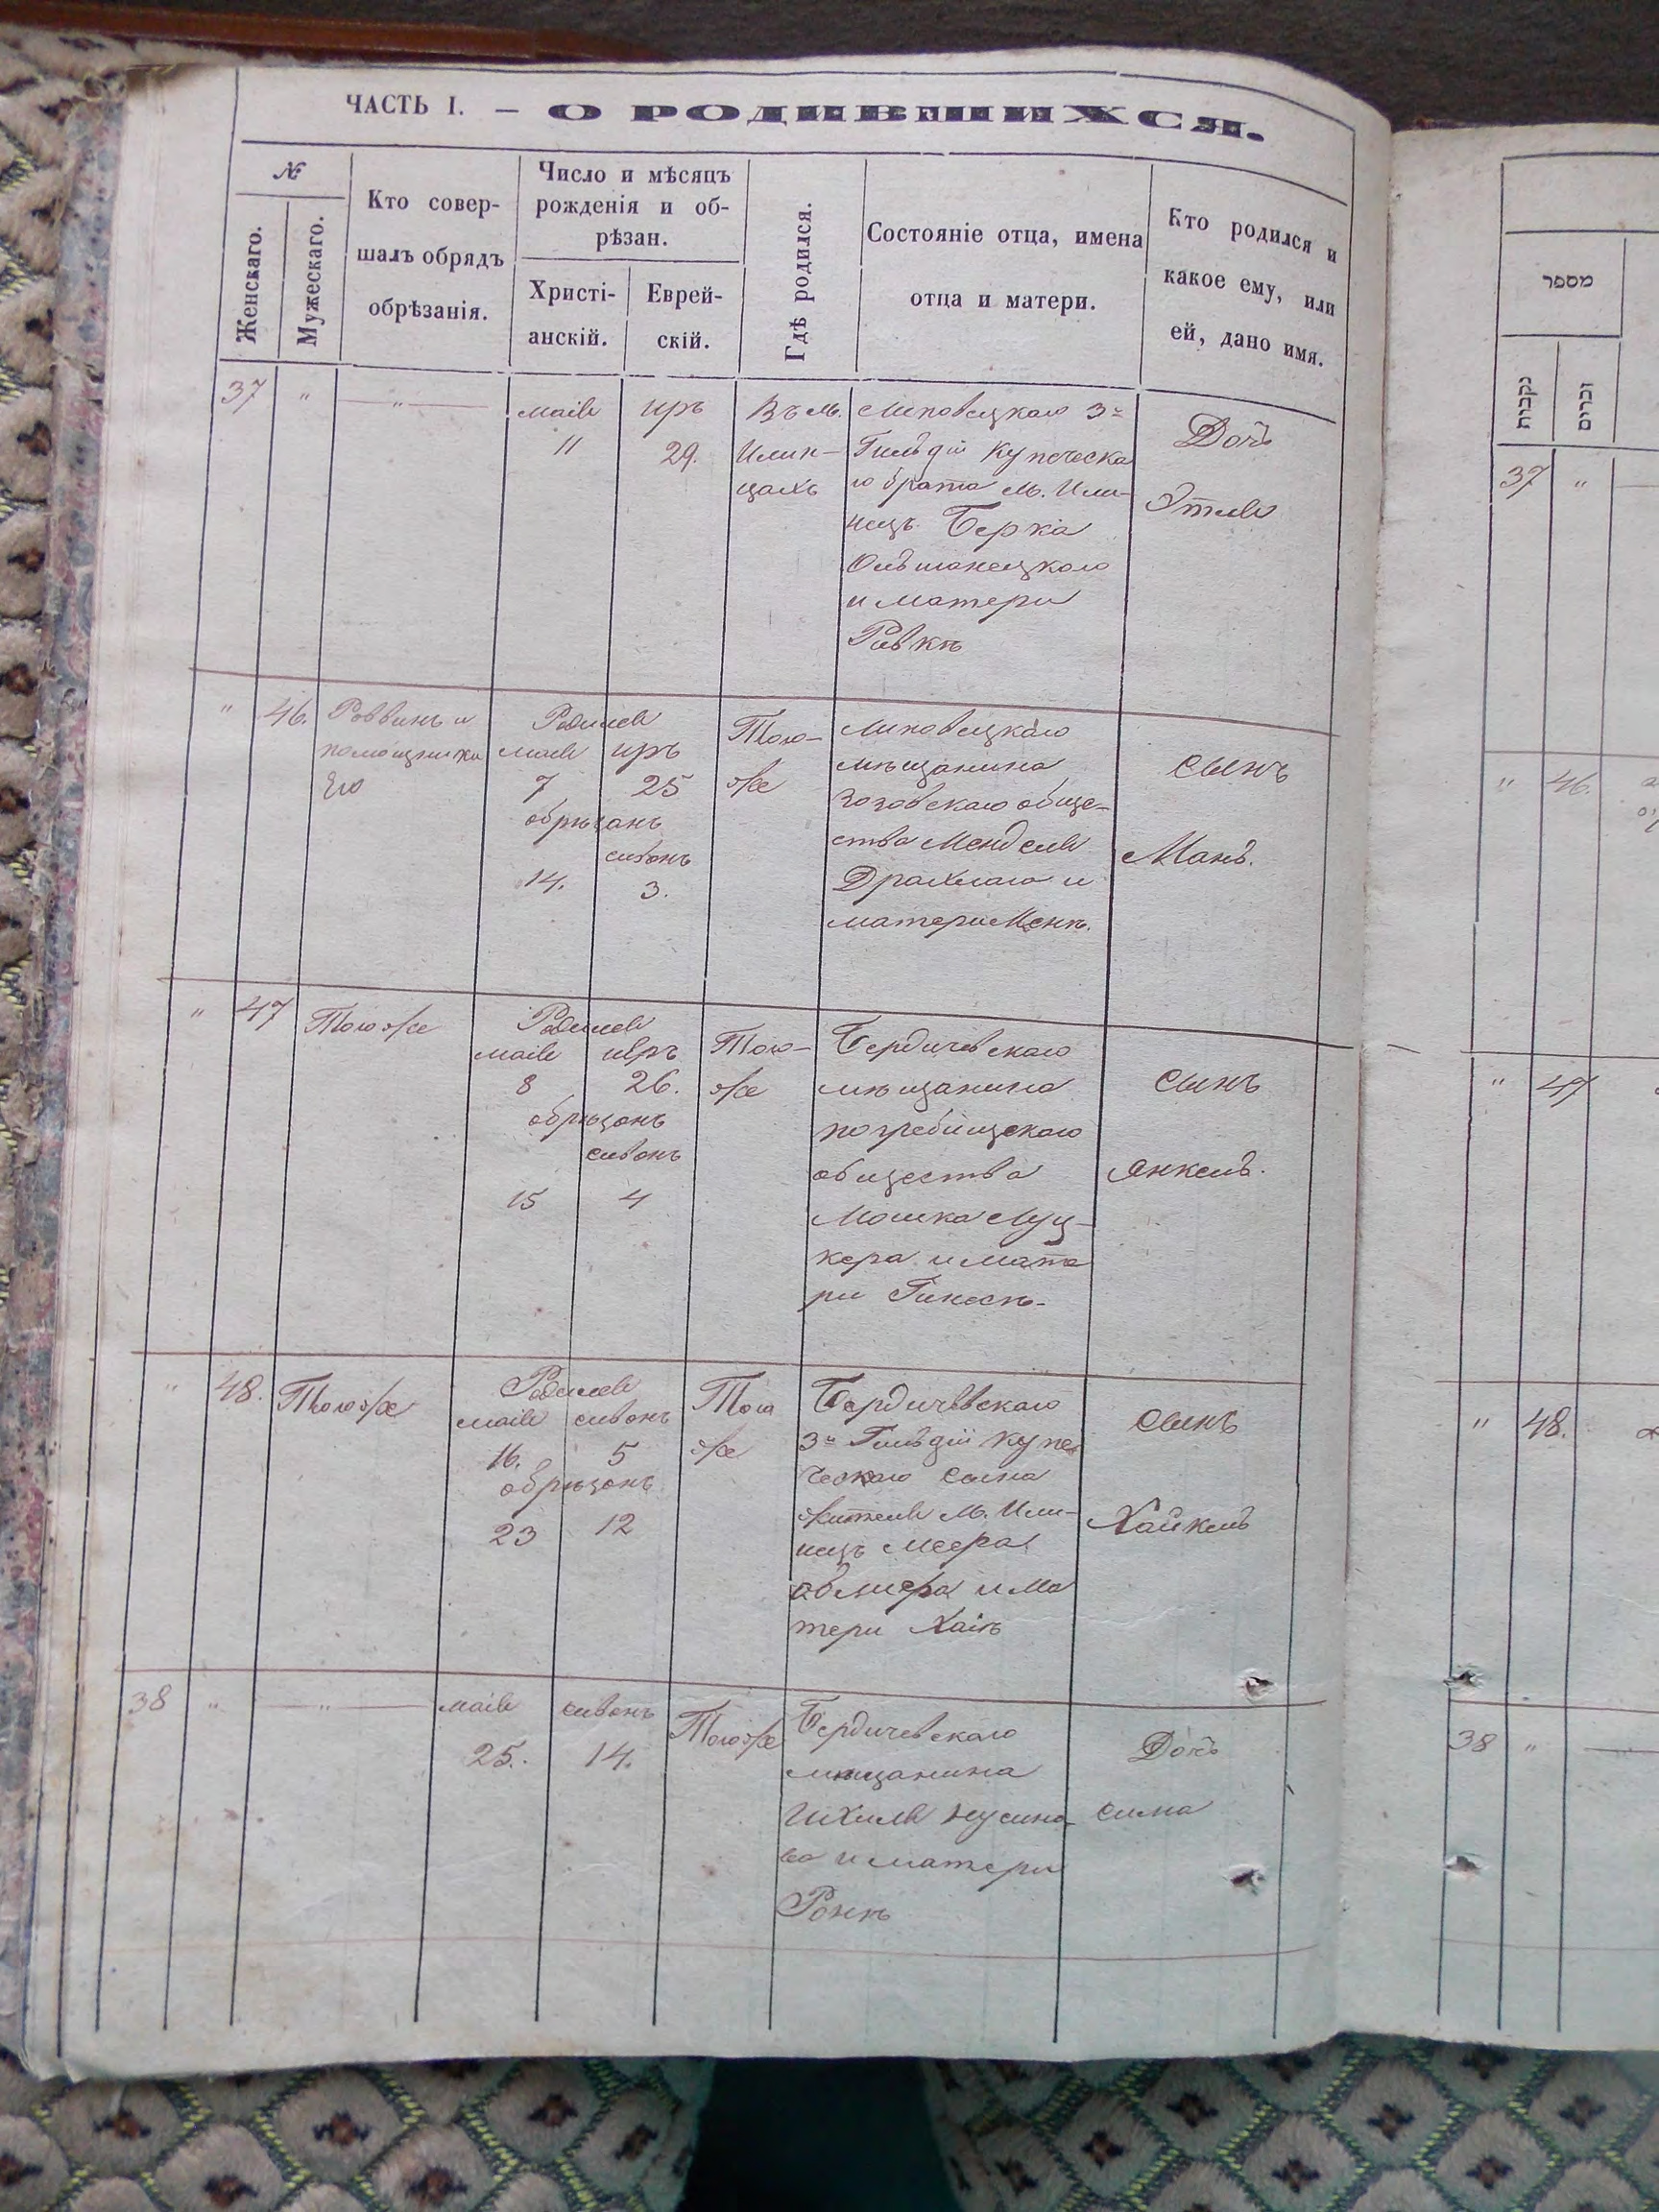 ЧАСТЬ I. — О РОДИВШИХСЯ.
№
Женскаго.
Мужескаго.
Кто совер-
шалъ обрядъ
обрѣзанія.
Число и мѣсяцъ
рожденія и об-
рѣзан.
Христі-
анскій.
Еврей-
скій.
Гдѣ родился.
Состояніе отца, имена
отца и матери.
Кто родился и
какое ему, или
ей, дано имя.
37 " — " —
маія
11
иръ
29.
Въ м.
Илин-
цахъ
Липовецкаго 3й
Гильдіи купеческа
го брата м. Или-
нецъ Берка
Ольшанецкого
и матери
Ривкѣ
Дочь
Этля
" 46.
Раввинъ и
помощника
Его
Родился
маія иръ
7 25
обрѣзанъ
сивонъ
14. 3.
Того-
же
Липовецкаго
мѣщанина
общe-
ства Менделя
и
матери Менѣ.
сынъ
Манъ.
" 47
Того же
Родился
маія иръ
8 26.
обрѣзонъ
сивонъ
15 4
Того-
же
Бердичевскаго
мѣщанина
погребищскаго
общества
Мошка Луц-
кера и мате
ри Гинесѣ.
сынъ
Янкель.
" 48.
Того же
Родился
маія сивонъ
16. 5
обрѣзонъ
23 12
Того
же
Бердичевскаго
3й Гильдіи купе
ческаго сына
жителя М. Или-
нецъ Меера
и ма
тери Хаіѣ
сынъ
Хайкель
38 " — " —
маія
25.
сивонъ
14.
Того же
Бердичевскаго
мѣщанина
Ихиля Нусино-
ва и матери
Ронѣ
Дочь
Сима
מספר
נקבות
זכרים
37 "
" 46.
" 47
" 48.
38 "